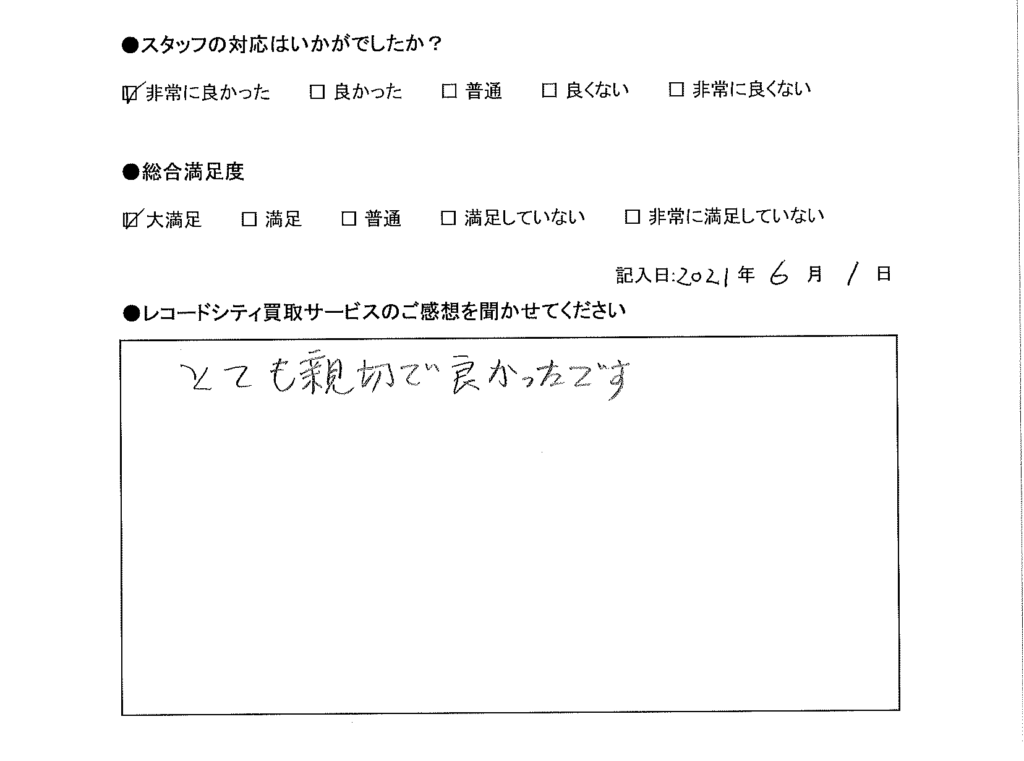 ●スタッフの対応はいかがでしたか？
☑非常に良かった　□ 良かった　□ 普通　□ 良くない　□ 非常に良くない
●総合満足度
☑大満足　□ 満足　□ 普通　□ 満足していない　□ 非常に満足していない
記入日:2021年 6 月 1 日
●レコードシティ買取サービスのご感想を聞かせてください
とても親切で良かったです